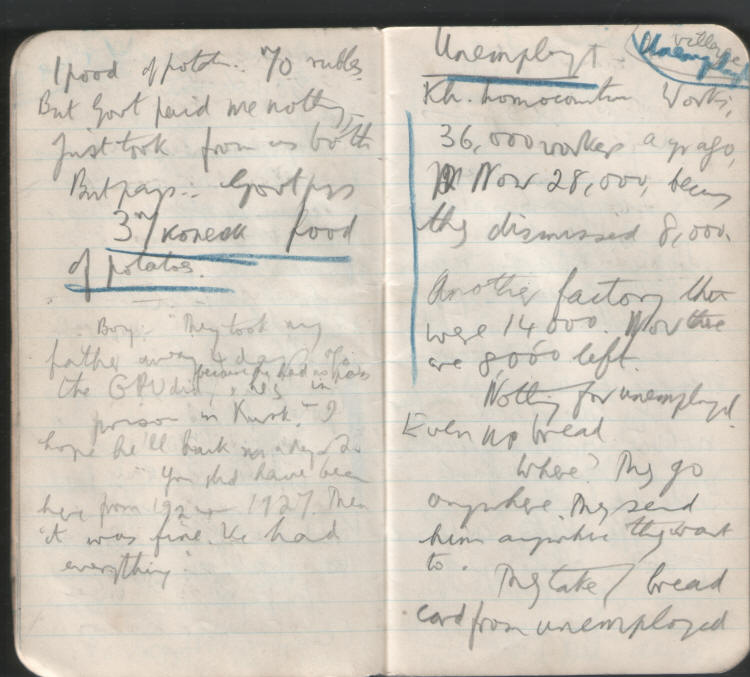 1 pood of potatoes. 70 rubles.
But Govt paid me nothing,
just took from us both
But pays: Govt pays
3 kopeck pood
of potatoes.
Boy: "They took my
father away 4 days ago
because he had no pass
the GPU did, he's in
prison in Kursk. I
hope he'll back in a day or so
You shd have been
here from 1924 1927. Then
it was fine. We had
everything".
Unemploymt
village
Unemploy
Kh. Lomocomtive Works,
36,000 workers a yr ago,
Now 28,000, becaus
they dismissed 8,000.
Another factory ther
were 14000. Now there
are 8,000 left.
Nothing for unemployed.
Even no bread
Where? They go
anywhere. They send
him anywhere they want
to.
They take bread
card from unemployed